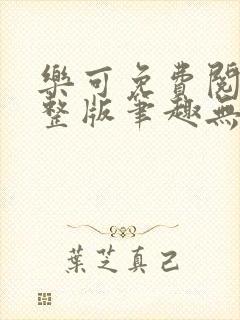 樂可免費閱
整版筆趣無
葉芝真己